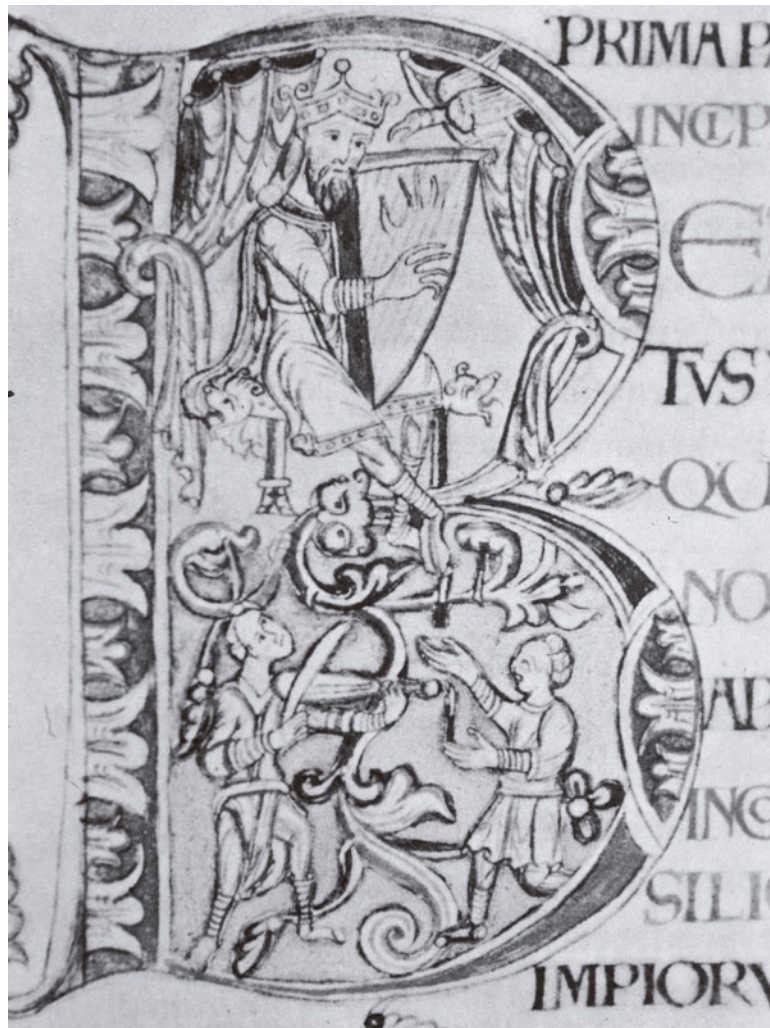 PRIMA P
INCIP
BE
TVS
QU
NO
AB
INCO
SILI
IMPIORV